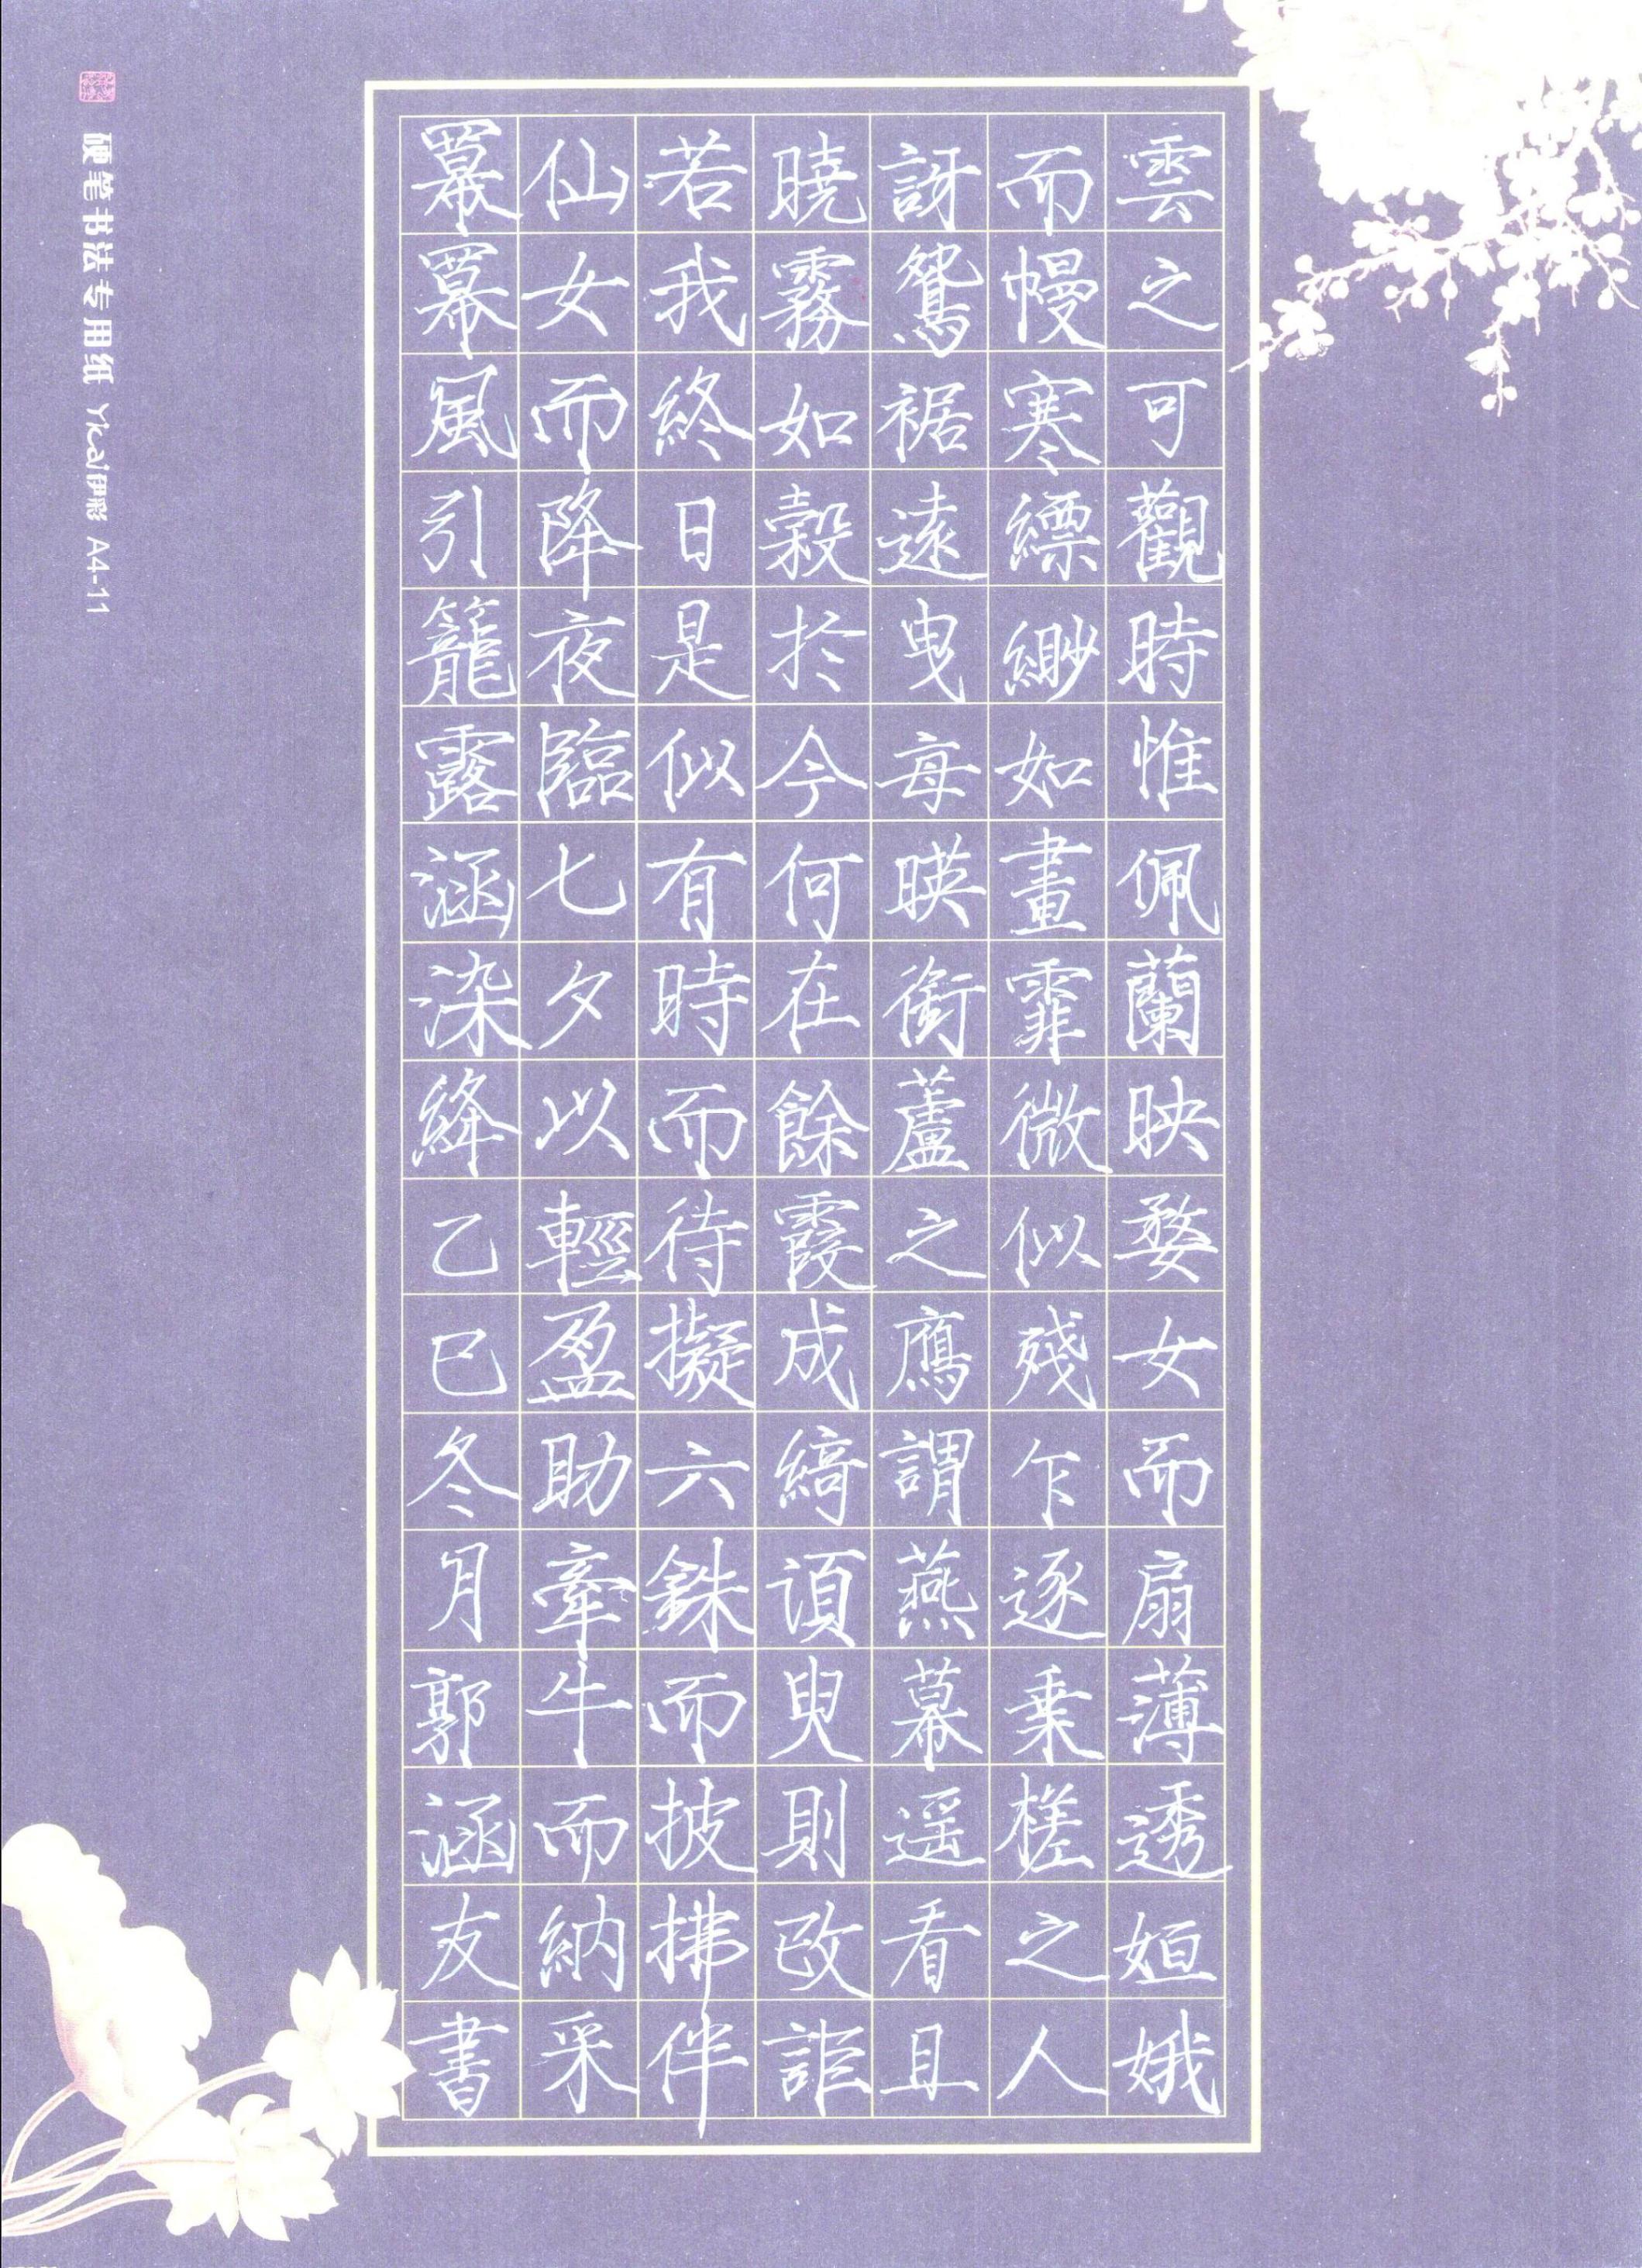 雲之可觀時惟佩蘭映婺女而扇薄透姮娥
而幔寒縹緲如畫霏微似殘乍逐乗槎之人
訝鴛裾遠曳每暎銜蘆之鴈謂燕幕遥看且
曉霧如縠於今何在餘霞成綺湏臾則改詎
若我終日是似有時而待擬六銖而披拂伴
仙女而降夜臨七夕以輕盈助牽牛而納采
羃羃風引籠露涵染絳乙巳冬月郭涵友書
硬笔书法专用纸 Yicai伊彩 A4-11